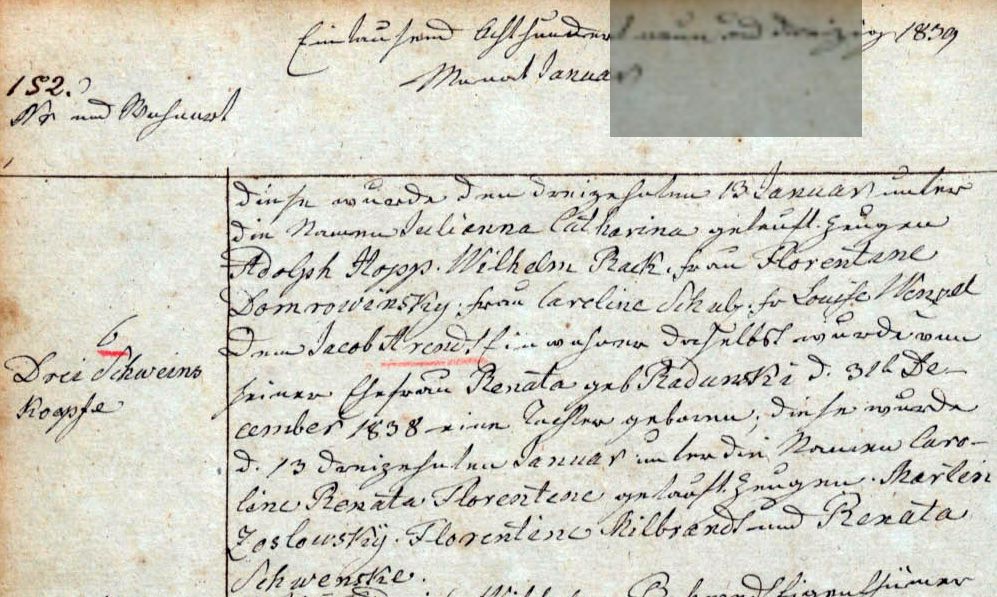 Eintausend Achthundert neun und dreizig 1839
Monat Januar
152.
Nr und Wohnort
diese wurde den dreizehnten 13 Januar unter
die Namen Julianna Catharina getauft. Zeugen
Adolph Hopp. Wilhelm Rack. frau Florentine
Domrowinsky. frau Careline Schulz. fr Louise Wenzel
6
Dem Jacob Arendt Einwohner daselbst wurde von
Drei Schweins
Koepfe
seiner Ehefrau Renata geb Radunski d. 31t De-
cember 1838 eine Tochter geboren, diese wurde
d. 13 dreizehnten Januar unter die Namen Caro-
line Renata Florentene getauft. Zeugen. Martin
Zoslowskÿ. Florentine Milbrandt und Renata
Schwenske.